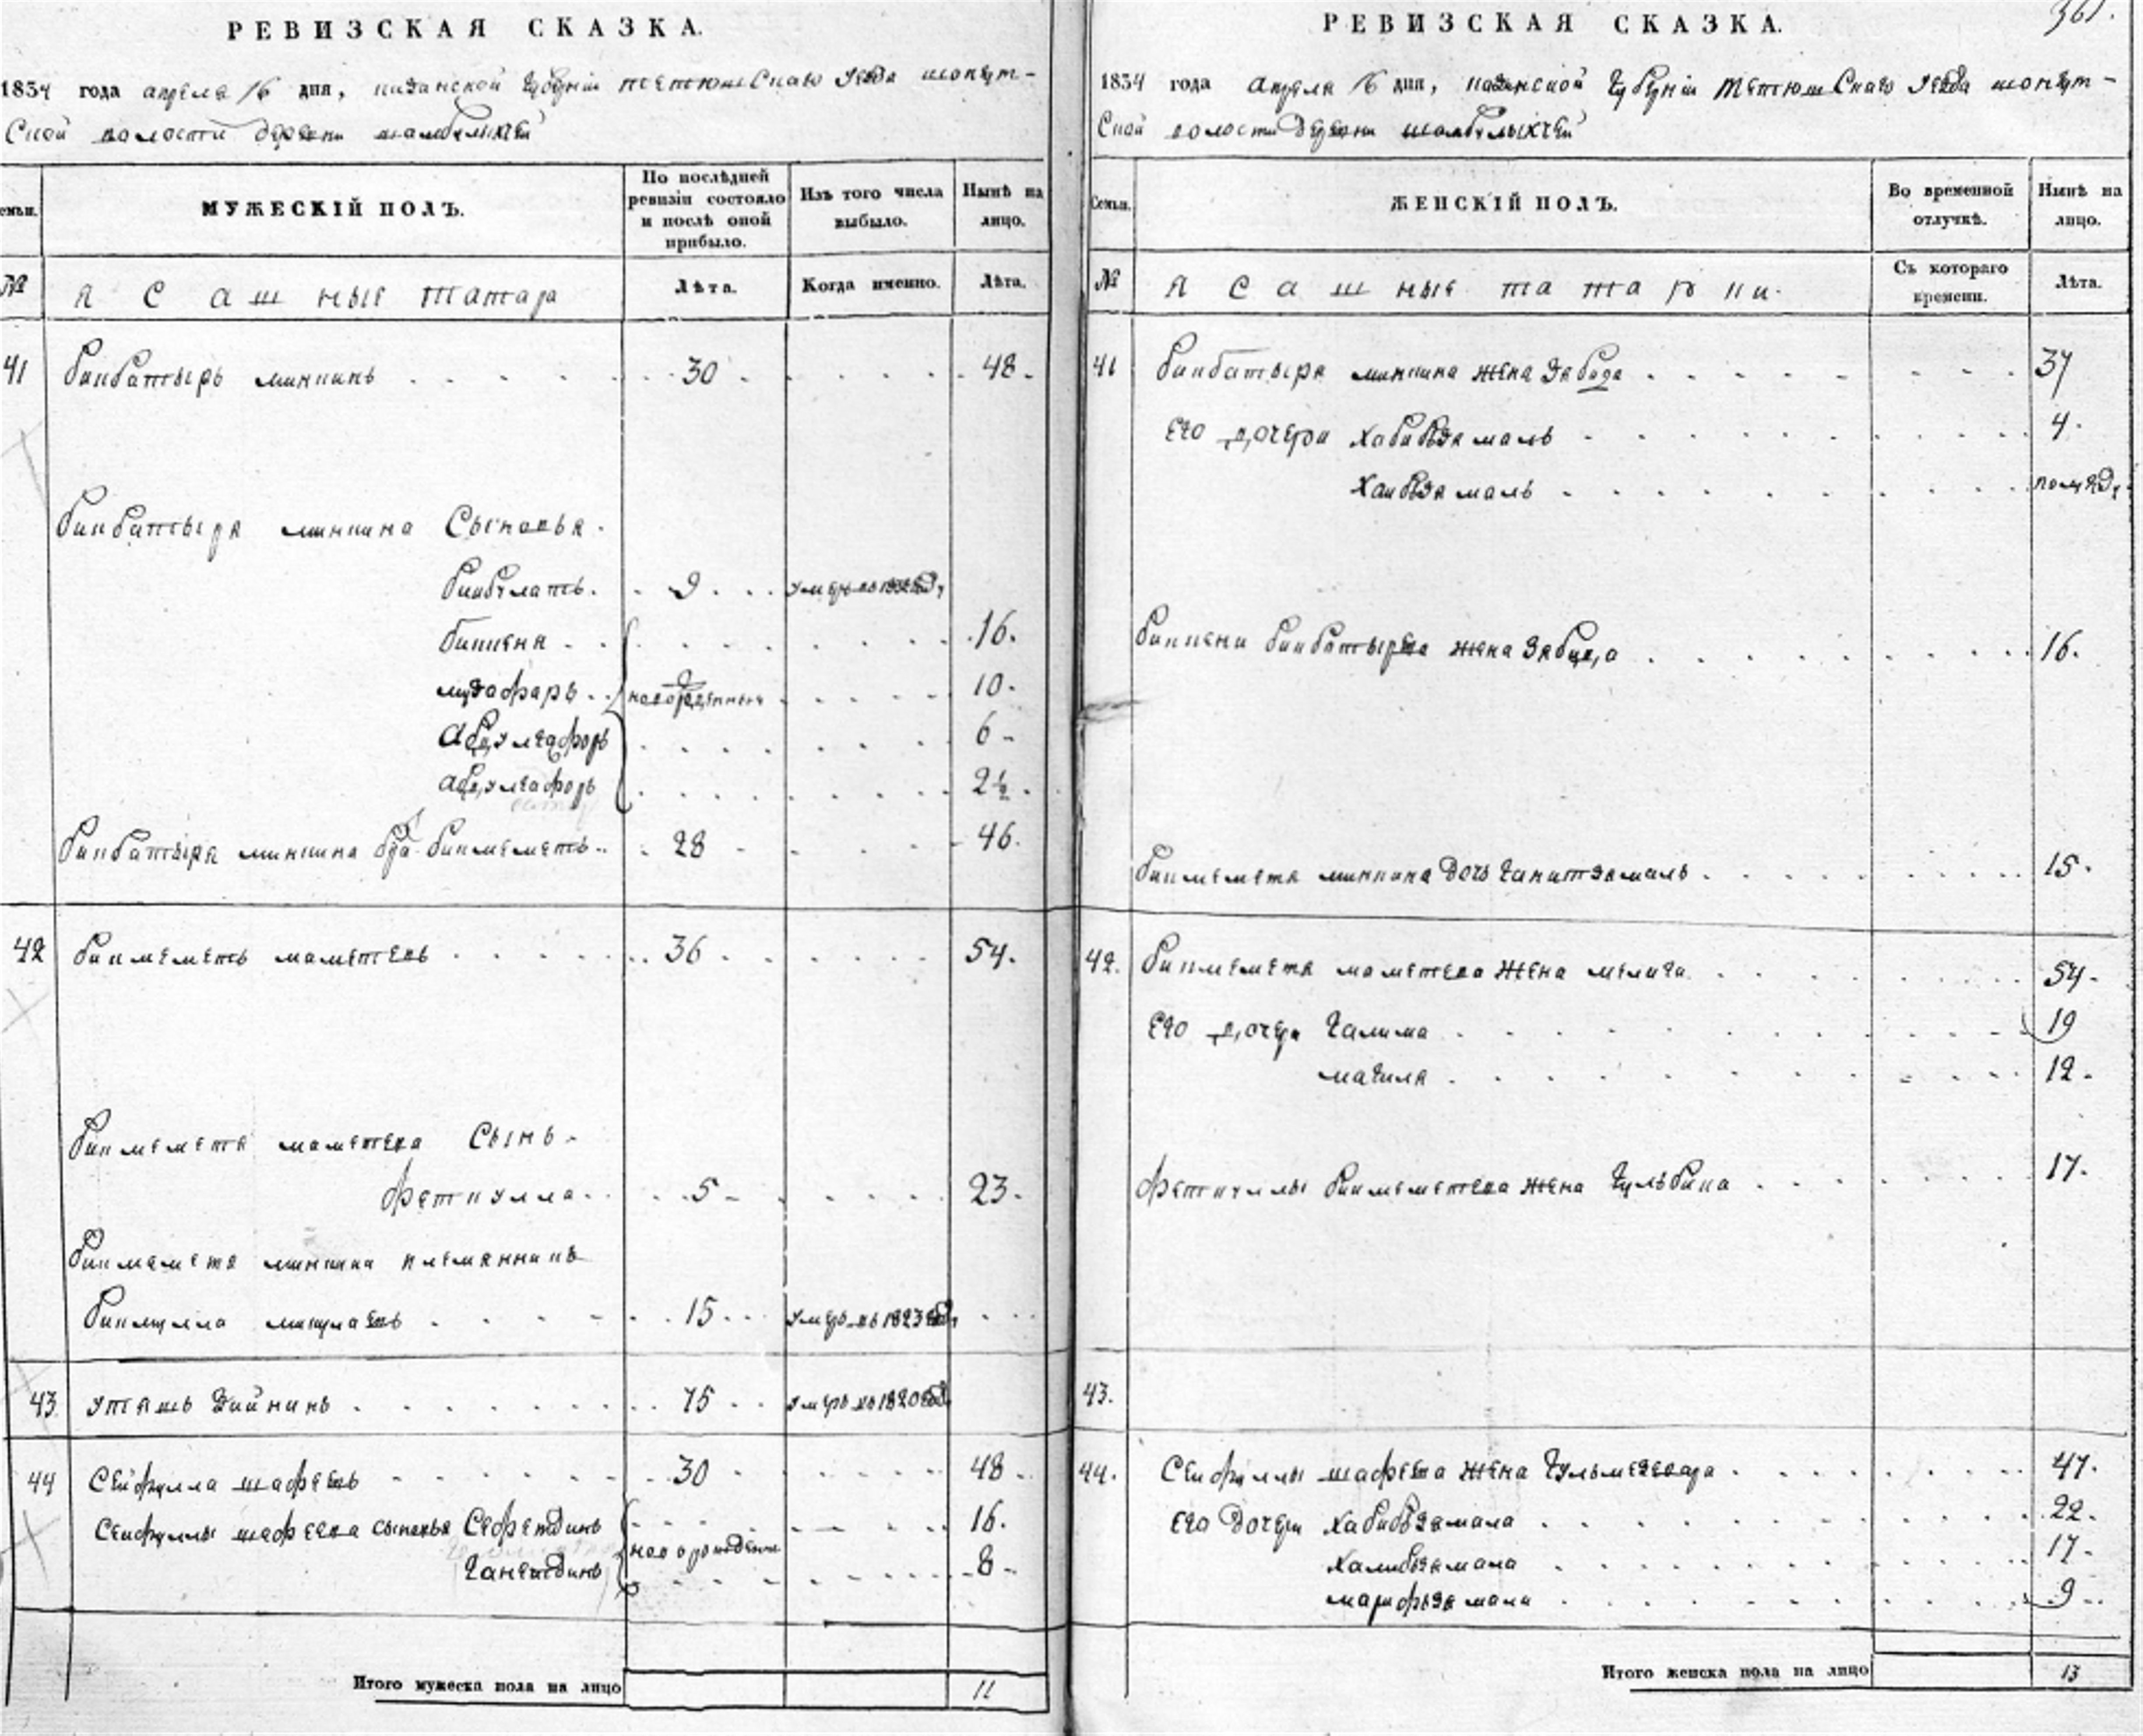 РЕВИЗСКАЯ СКАЗКА.
1834 года апреля 16 дня, казанской Губерніи тетюшскаго уезда шонгут-
ской волости деревни шамбулыхчей
Семьи.
МУЖЕСКІЙ ПОЛЪ.
По послѣдней ревизіи состояло и послѣ оной прибыло.
Изъ того числа выбыло.
Нынѣ на лицо.
№
ясашныя татара
Лѣта.
Когда именно.
Лѣта.
41 бикбатырь минкинъ 30 48
бикбатыря минкина Сыновья
бикбулатъ 9 умеръ въ
биккеня 16
музафаръ новорожденныя 10
Абдулгафоръ 6
абдулгафоръ 2½
бикбатыря минкина бра бикмеметь 28 46
42 бикмеметь маметевъ 36 54
бикмеметя маметева Сынъ
феткулла 5 23
бикмеметя минкина племянникъ
бикмулла 15 умеръ въ 1823 году
43 утяшь 75 умеръ въ 1820 году
44 Сейфулла шафеевъ 30 48
Сейфуллы шафеева сыновья Сефетдинъ 16
новорожденны
Ганетдинъ 8
Итого мужеска пола на лицо 11
361.
РЕВИЗСКАЯ СКАЗКА.
1834 года апреля 16 дня, казанской Губерніи тетюшскаго уезда шонгут-
ской волости деревни шамбулыхчей
Семьи.
ЖЕНСКІЙ ПОЛЪ.
Во временной отлучкѣ.
Нынѣ на лицо.
№
ясашныя татарки
Съ котораго времени.
Лѣта.
41 бикбатыря минкина жена 37
его дочери хабибзямаль 4
хаибзямаль полгод
биккени бикбатырева жена зябида 16
бикмеметя минкина дочь 15
42 бикмеметя маметева жена мелига 54
его дочери Галима 19
магиля 12
феткуллы бикмеметева жена Гульбика 17
43.
44. Сейфуллы шафеева жена 47
его дочери хабибзямала 22
халибзямала 17
марифзямали 9
Итого женска пола на лицо 13